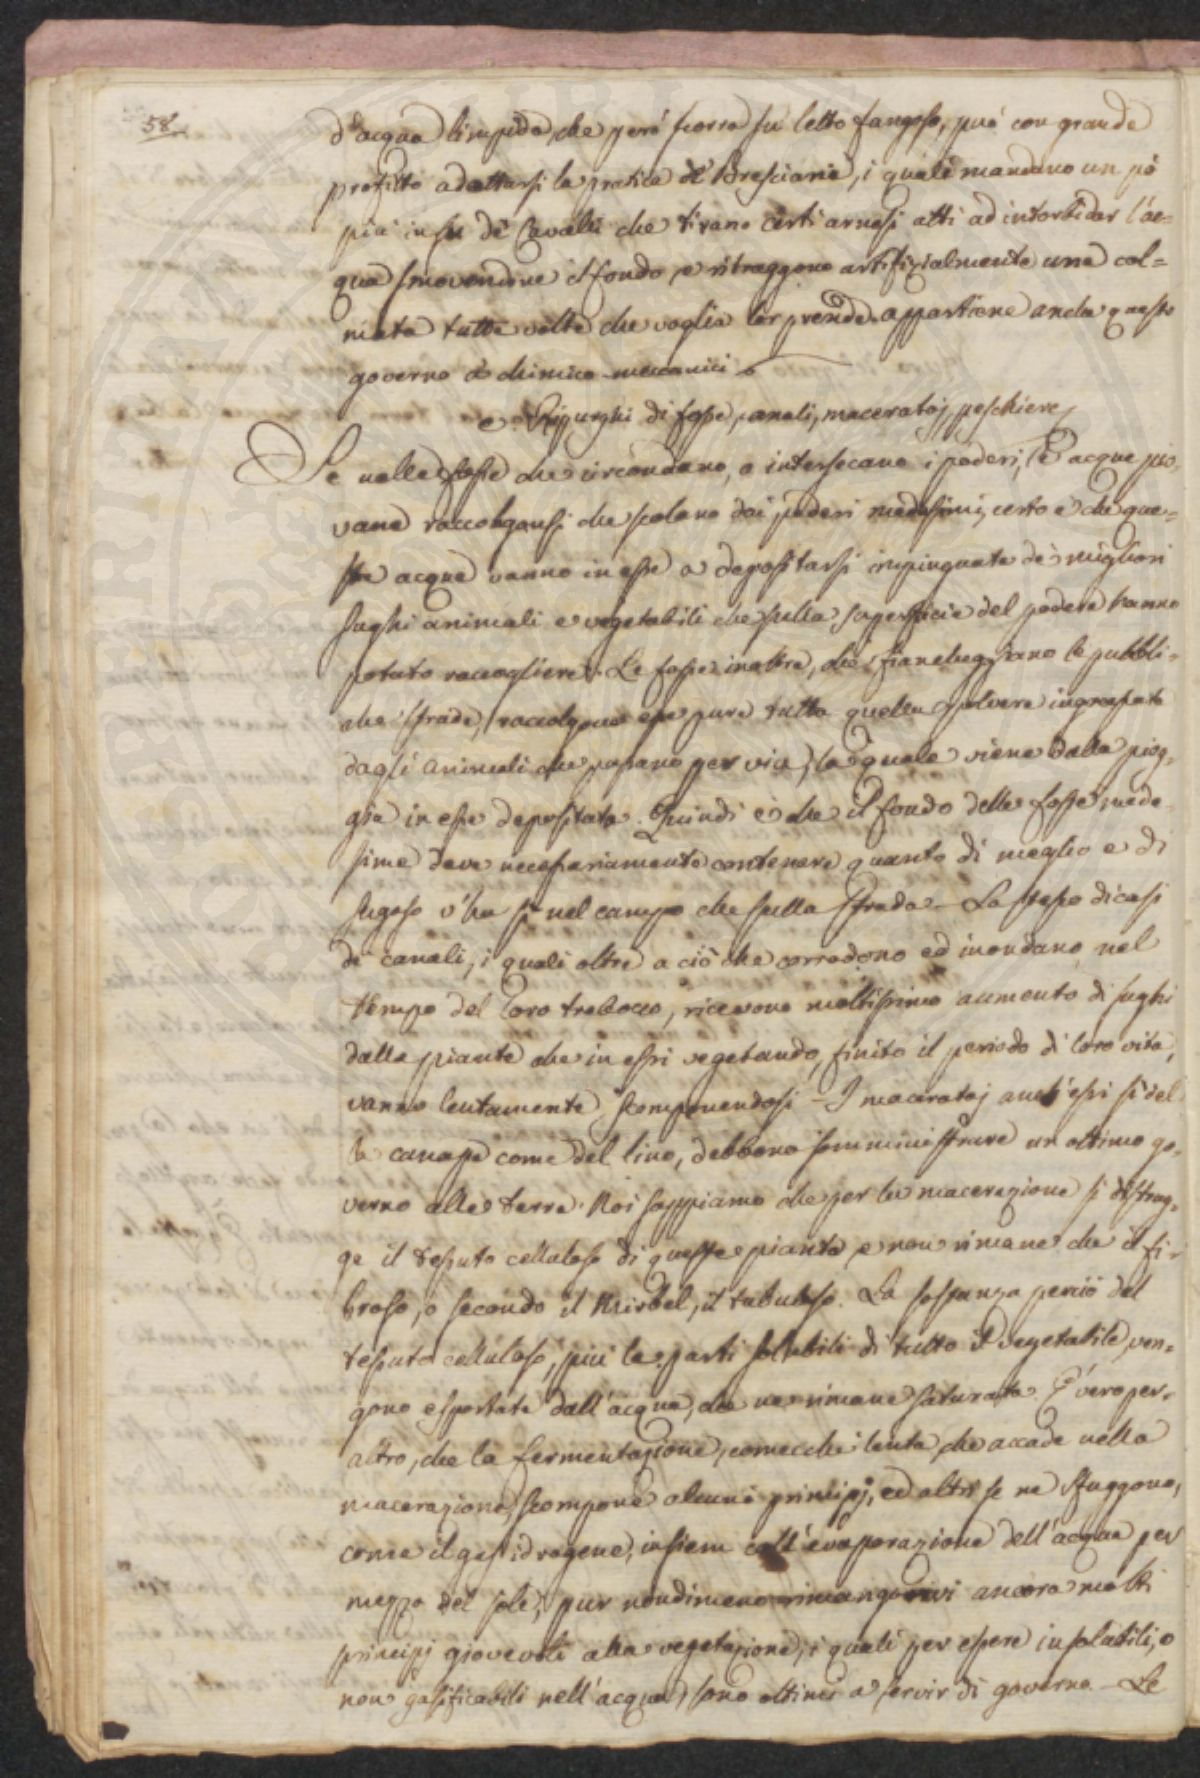 58
d'acqua limpida, che però scorra su letto fangoso, può con grande
profitto adottarsi la pratica de' Bresciani, i quali mandano un pò
più in su de' Cavalli che tirano certi arnesi atti ad intorbidar l'ac=
qua smovendone il fondo, e ritraggono artifizialmente una col=
mata tutte volte che voglia lor prende. appartiene anche questo
governo a' chimico-meccanici
e. Ripurghi di fosse, canali, maceratoj, peschiere
Se nelle fosse che circondano, o intersecano i poderi, le acque pio=
vane raccolgonsi che scolano dai poderi medesimi, certo è che que=
ste acque vanno in esse a depositarsi impinguate de' migliori
sughi animali e vegetabili che sulla superficie del podere hanno
potuto raccogliere. Le fosse inoltre, che fiancheggiano le pubbli=
che strade, raccolgono esse pure tutta quella polvere ingrassata
dagli animali che passano per via, la quale viene dalla piog=
gia in esse depositata. Quindi è che il fondo delle fosse mede
sime deve necessariamente contenere quanto di meglio e di
sugoso v'ha sì nel campo che sulla strada – Lo stesso dicasi
de' canali, i quali oltre a ciò che corrodono ed inondano nel
tempo del loro trabocco, ricevono moltissimo aumento di sughi
dalle piante che in essi vegetando, finito il periodo di loro vita,
vanno lentamente scomponendosi – I maceratoj anch'essi sì del
la canape come del lino, debbono somministrare un ottimo go=
verno alle terre. Noi sappiamo che per la macerazione si distrug=
ge il tessuto celluloso di queste piante e non rimane che il fi=
broso, o secondo il Mirbel, il tubuloso. La sostanza perciò del
tessuto celluloso, più le parti solubili di tutto il vegetabile, ven=
gono esportate dall'acqua, che ne rimane saturata. È vero per=
altro, che la fermentazione, comecchè lenta, che accade nella
macerazione, scompone alcuni principj, ed altri se ne sfuggono,
come il gas idrogene, insiem coll'evaporazione dell'acqua per
mezzo del sole, pur nondimeno rimangonvi ancora molti
principj giovevoli alla vegetazione, i quali per essere insolubili, o
non gasificabili nell'acqua, sono ottimi a servir di governo – Le